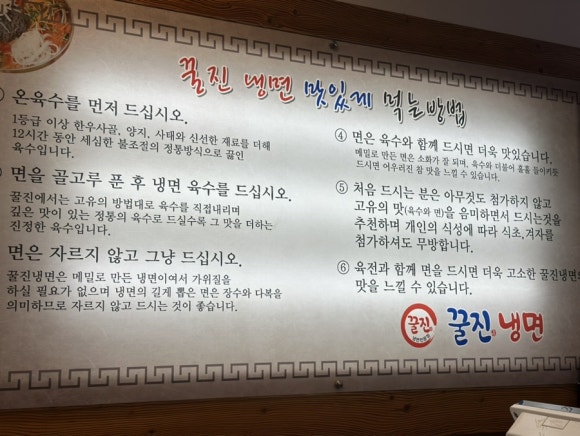 꿀진 냉면 맛있게 먹는방법
온육수를 먼저 드십시오.
1등급 이상 한우사골, 양지, 사태와 신선한 재료를 더해
12시간 동안 세심한 불조절의 정통방식으로 끓인
육수입니다.
면을 골고루 푼 후 냉면 육수를 드십시오.
꿀진에서는 고유의 방법대로 육수를 직접내리며
깊은 맛이 있는 정통의 육수로 드실수록 그 맛을 더하는
진정한 육수입니다.
면은 자르지 않고 그냥 드십시오.
꿀진냉면은 메밀로 만든 냉면이여서 가위질을
하실 필요가 없으며 냉면의 길게 뽑은 면은 장수와 다복을
의미하므로 자르지 않고 드시는 것이 좋습니다.
④ 면은 육수와 함께 드시면 더욱 맛있습니다.
메밀로 만든 면은 소화가 잘 되며, 육수와 더불어 훌훌 들이키듯
드시면 어우러진 참 맛을 느낄 수 있습니다.
⑤ 처음 드시는 분은 아무것도 첨가하지 않고
고유의 맛(육수와 면)을 음미하면서 드시는것을
추천하며 개인의 식성에 따라 식초,겨자를
첨가하셔도 무방합니다.
⑥ 육전과 함께 면을 드시면 더욱 고소한 꿀진냉면의
맛을 느낄 수 있습니다.
꿀진
꿀진 냉면